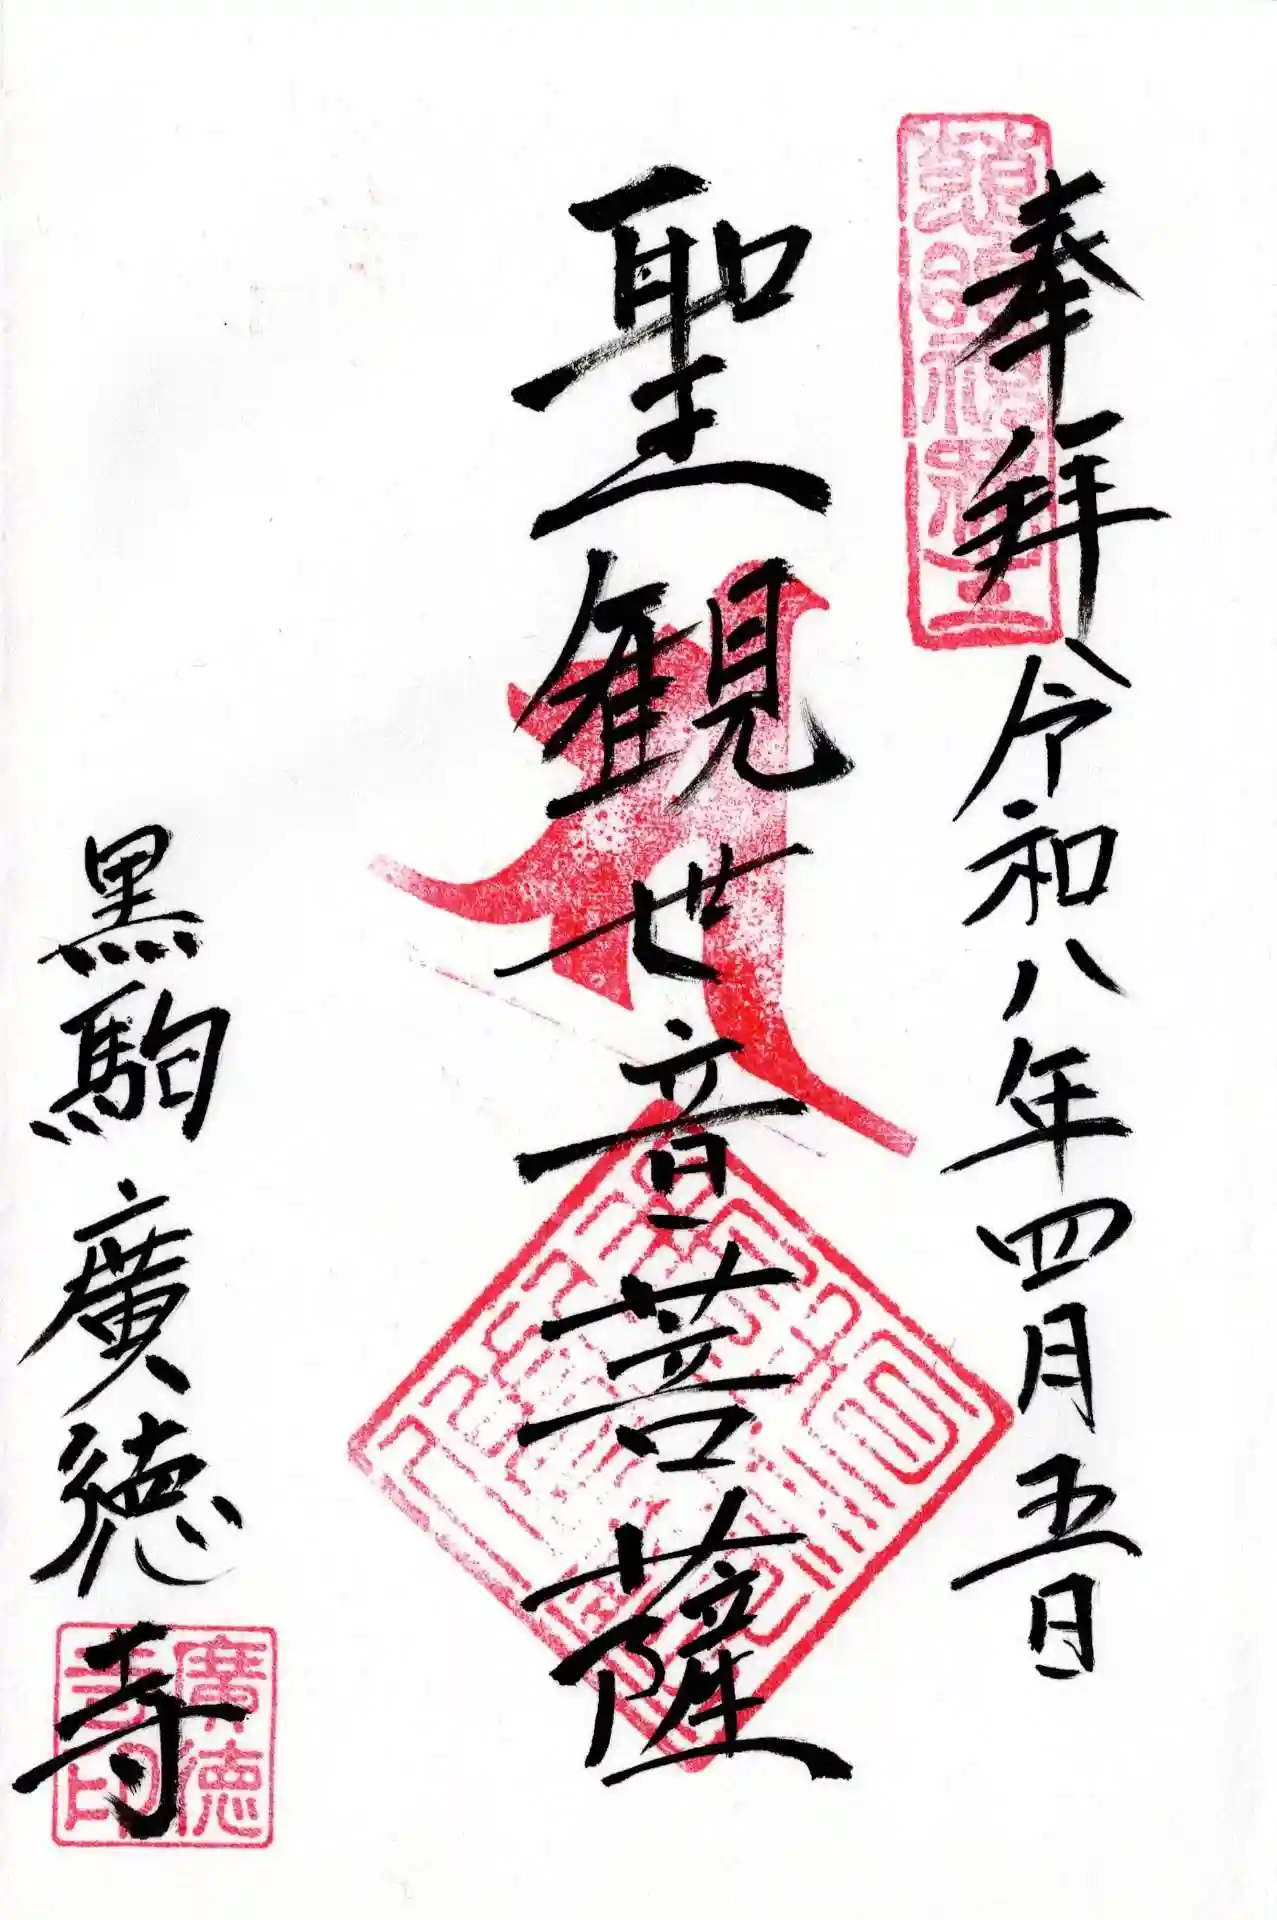 奉拜 令和八年四月五日
聖観世音菩薩
黒駒 廣徳寺
廣徳寺印